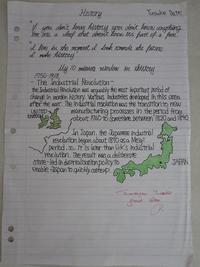 History
"If you don't know history, you don't know anything.
You are a leaf that doesn't know it's part of a tree."
"I live in the moment. I look towards the future.
I make history"
My 10 minute window in history
1750-1918
- The Industrial Revolution -
the Industrial Revolution was arguably the most important period of
change in modern history. Various industries developed in this
after the war. The Industrial revolution was the transition to new
UNITED manufacturing processes in the period from
about 1760 to sometime between 1820 and 1840
In Japan, the Japanese industrial
revolution began about 1870 as a Meiji
period. So it is later than U.K's industrial
revolution. The result was a deliberate
state-led industrialisation policy to
enable Japan to quickly
JAPAN